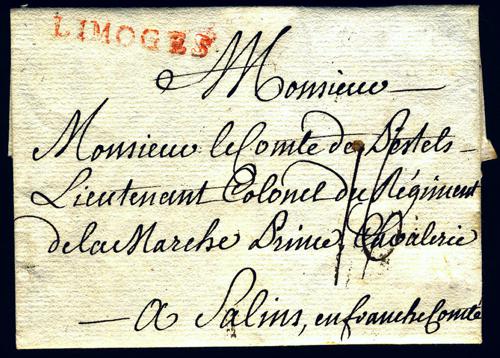 LIMOGES
Monsieur
Monsieur le Comte de Pestels
Lieutenant Colonel du Régiment
de la Marche Prince, Cavalerie
A Salins, en franche Comté